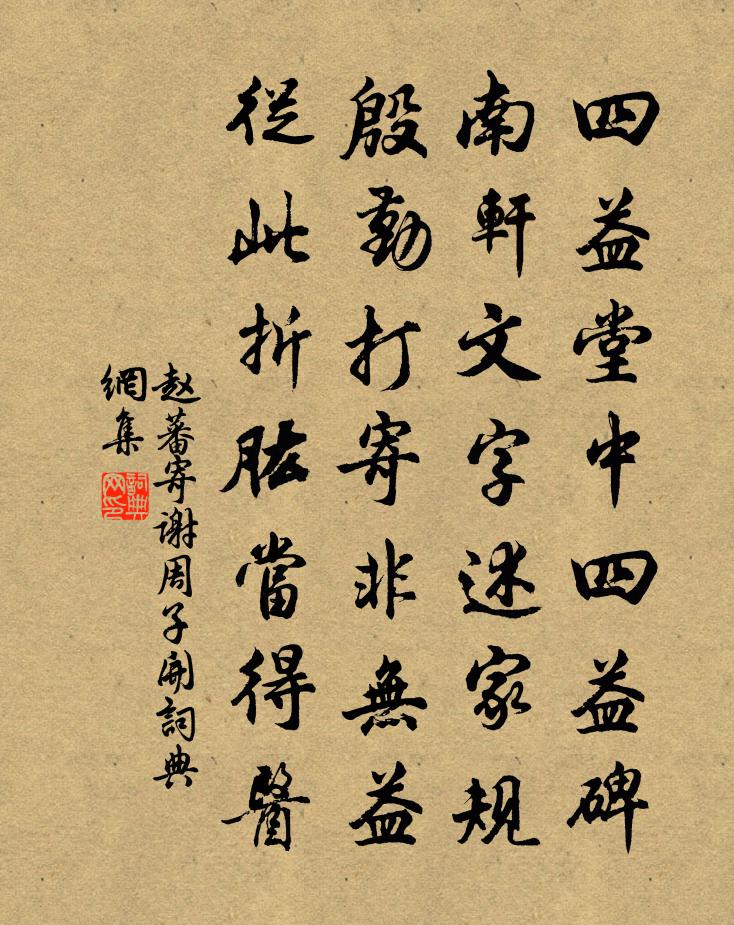 四益堂中四益碑
南軒文字述家規
殷勤打寄非無益
從此折肱當得醫
赵蕃寄谢周子開詞典
網集
詞典
网印